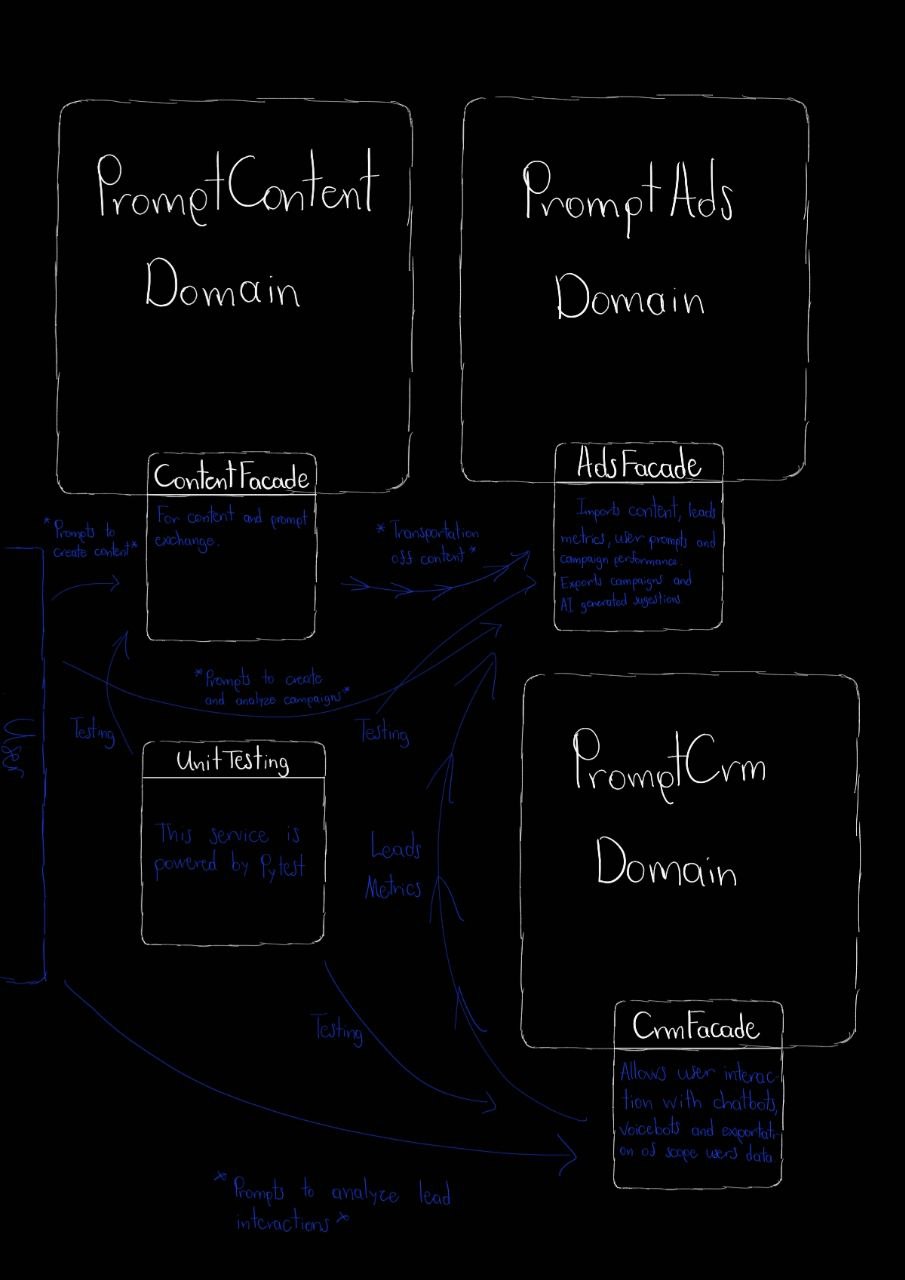 PromptContent
Domain
PromptAds
Domain
ContentFacade
For content and prompt
exchange.
AdsFacade
Imports content, leads
metrics, user prompts and
campaign performance.
Exports campaigns and
AI generated sugestions
*Prompts to
create content*
*Transportation
off content*
*Prompts to create
and analyze campaigns*
Testing
Testing
User
UnitTesting
This service is
powered by Pytest
Leads
Metrics
PromptCrm
Domain
Testing
CrmFacade
Allows user interac-
tion with chatbots,
voicebots and exportati-
on of scope users data
*Prompts to analyze lead
interactions*